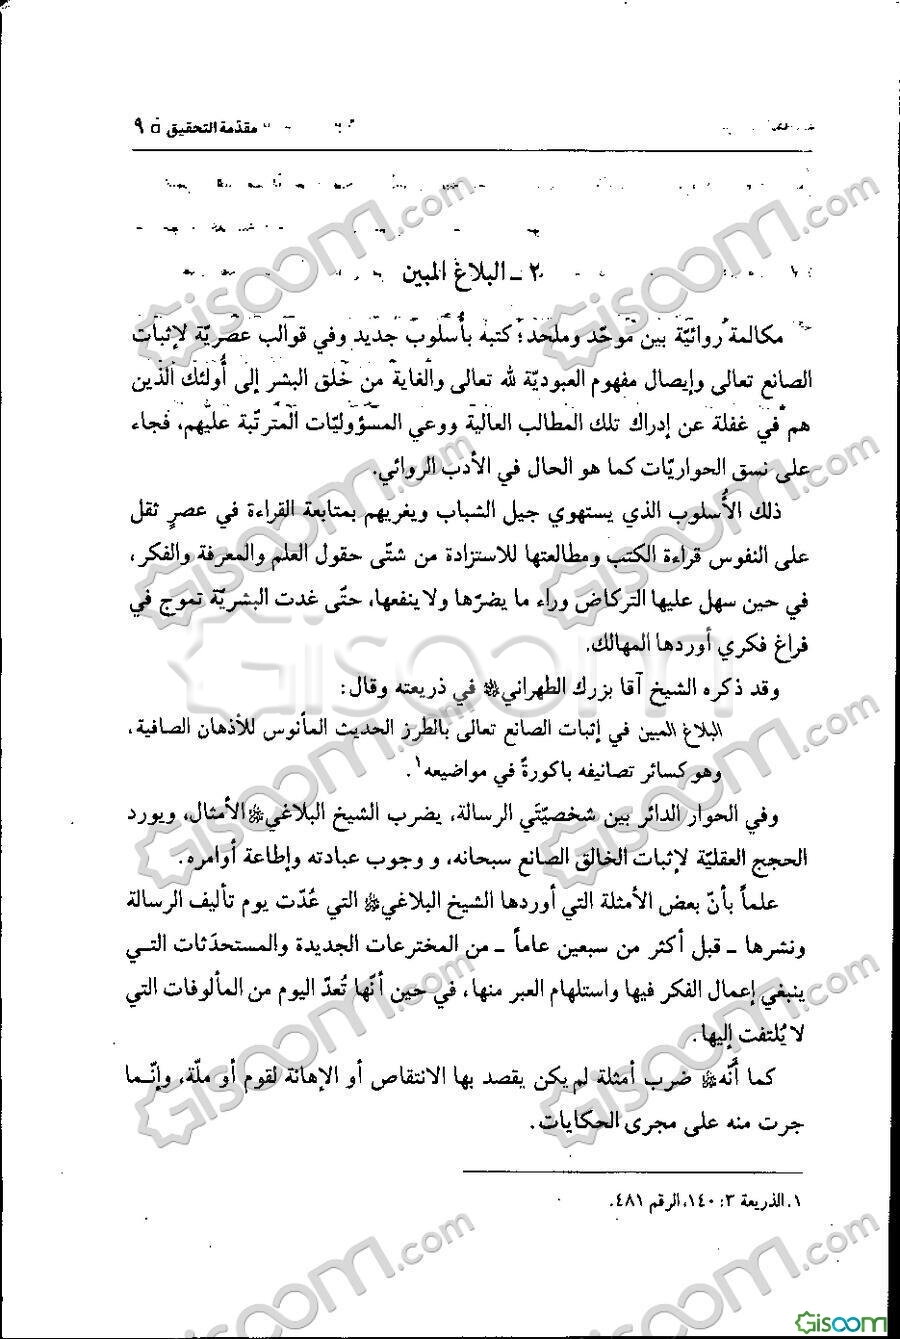 مقدّمة التحقيق ٥ ٩
٢ ـ البلاغ المبين
مكالمة روائيّة بين موحّد وملحد؛ كتبه بأُسلوب جديد وفي قوالب عصريّة لإثبات
الصانع تعالى وإيصال مفهوم العبوديّة لله تعالى والغاية من خلق البشر إلى أُولئك الذين
هم في غفلة عن إدراك تلك المطالب العالية ووعي المسؤوليّات المترتّبة عليهم، فجاء
على نسق الحواريّات كما هو الحال في الأدب الروائي.
ذلك الأُسلوب الذي يستهوي جيل الشباب ويغريهم بمتابعة القراءة في عصرٍ ثقل
على النفوس قراءة الكتب ومطالعتها للاستزادة من شتّى حقول العلم والمعرفة والفكر،
في حين سهل عليها التركاض وراء ما يضرّها ولا ينفعها، حتّى غدت البشريّة تموج في
فراغ فكري أوردها المهالك.
وقد ذكره الشيخ آقا بزرك الطهراني في ذريعته وقال:
البلاغ المبين في إثبات الصانع تعالى بالطرز الحديث المأنوس للأذهان الصافية،
وهو كسائر تصانيفه باكورةً في مواضيعه١.
وفي الحوار الدائر بين شخصيّتَي الرسالة، يضرب الشيخ البلاغي الأمثال، ويورد
الحجج العقليّة لإثبات الخالق الصانع سبحانه، و وجوب عبادته وإطاعة أوامره.
علماً بأنّ بعض الأمثلة التي أوردها الشيخ البلاغي التي عُدّت يوم تأليف الرسالة
ونشرها ـ قبل أكثر من سبعين عاماً ـ من المخترعات الجديدة والمستحدَثات التي
ينبغي إعمال الفكر فيها واستلهام العبر منها، في حين أنّها تُعدّ اليوم من المألوفات التي
لا يُلتفت إليها.
كما أنّه ضرب أمثلة لم يكن يقصد بها الانتقاص أو الإهانة لقوم أو ملّة، وإنّما
جرت منه على مجرى الحكايات.
١. الذريعة ٣: ١٤٠، الرقم ٤٨١.
Gisoom.com
Gisoom